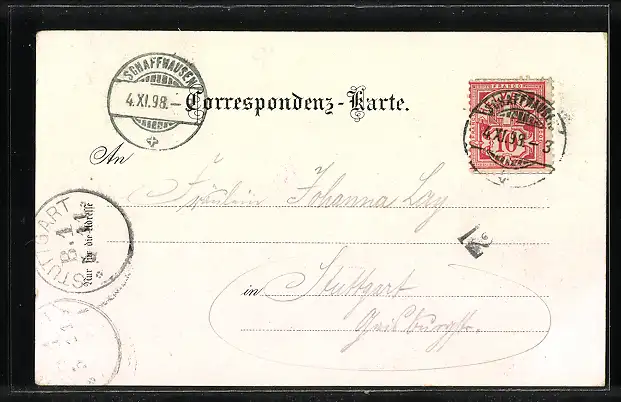 SCHAFFHAUSEN
4.XI.98.–
Correspondenz-Karte.
FRANCO
10
SCHAFFHAUSEN
4.XI.98.–3
An
Fräulein Johanna Lay
Nur für die Adresse
STUTTGART
12
in Stuttgart
Gaisburgstr.